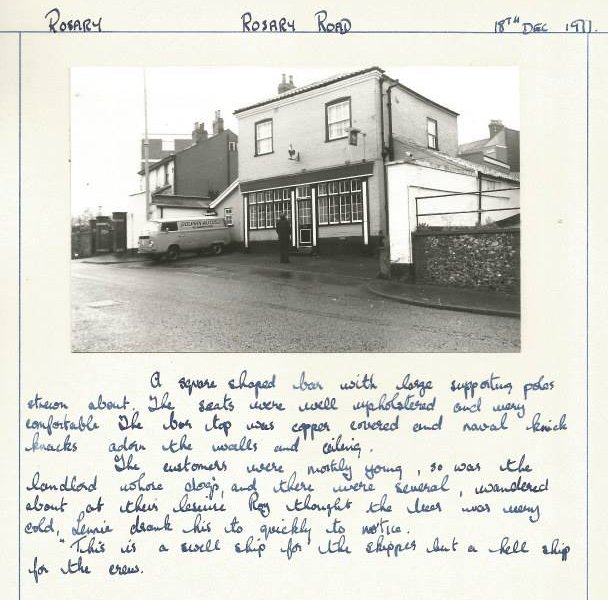 Rosary Rosary Road 18TH Dec 1977.
DOLPHIN MOTORS
A square shaped bar with large supporting poles
strewn about. The seats were well upholstered and very
comfortable The bar top was copper covered and naval knick
knacks adorn the walls and ceiling.
The customers were mostly young, so was the
landlord whose dogs, and there were several, wandered
about at their leisure Roy thought the beer was very
cold, Lennie drank his to quickly to notice.
"This is a swell ship for the skipper but a hell ship
for the crew.